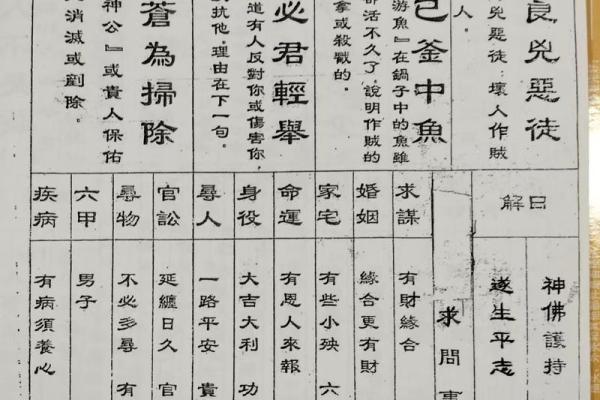 良兇惡徒
兇惡徒：壞人作賊
人。
釜中魚
游魚』在鍋子中的魚雖
都活不久了，說明作賊的
拿或殺戮的。
必君輕舉
道有人反對你或傷害你，
抗他，理由在下一句。
蒼為掃除
神公』或貴人保佑
消滅或剷除。
解曰
神佛護持
遂生平志
求問事
求謀 有財緣合
婚姻 緣合更有財
家宅 有些小殃 六
命運 有恩人來報
身役 大吉大利 功
尋人 一路平安 貴
官訟 延纏日久 官
尋物 不必多尋 有
六甲 男子
疾病 有病須養心